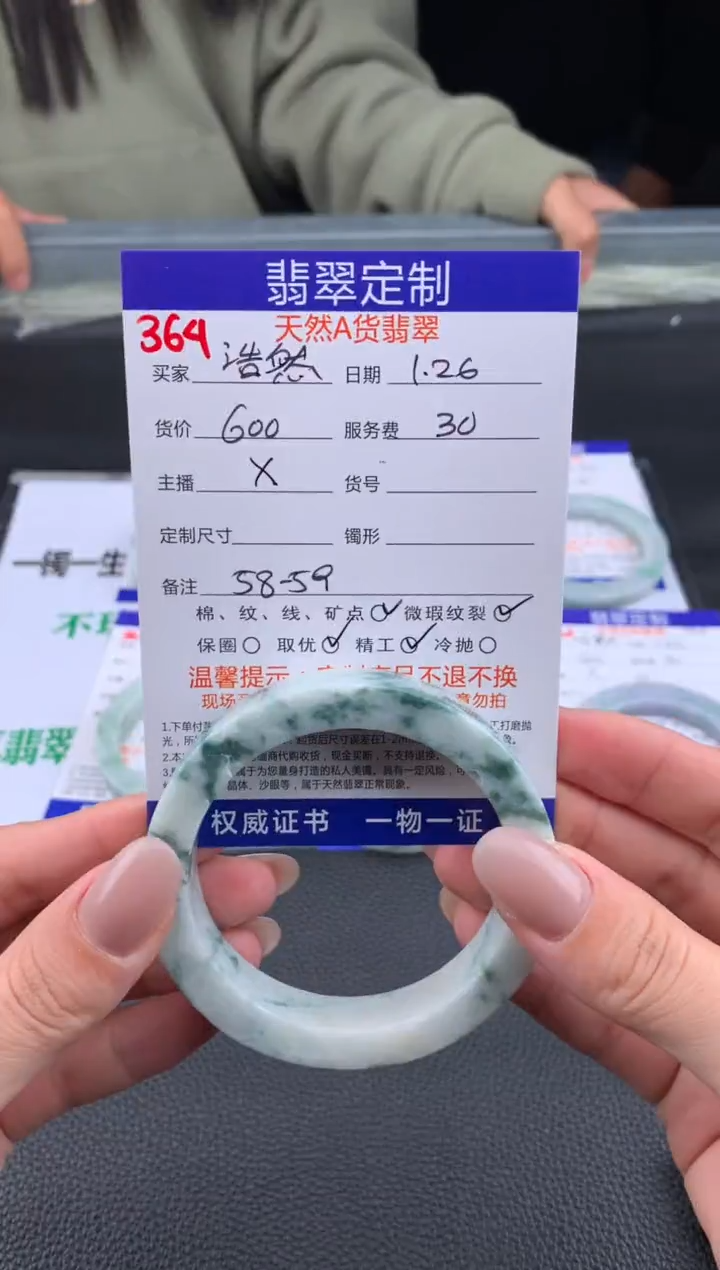 翡翠定制
364 天然A货翡翠
买家 浩然 日期 1.26
货价 600 服务费 30
主播 X 货号
定制尺寸 镯形
备注 58-59
棉、纹、线、矿点 微瑕纹裂
保圈 取优 精工 冷抛
温馨提示: 不退不换
现场 意勿拍
1.下单付 工打磨抛
光，所
2.本 商代购收货，现金买断，不支持退换
3. 属于为您量身打造的私人美镯。具有一定风险，可
晶体、沙眼等，属于天然翡翠正常现象。
权威证书 一物一证
一镯一生
不
翡翠